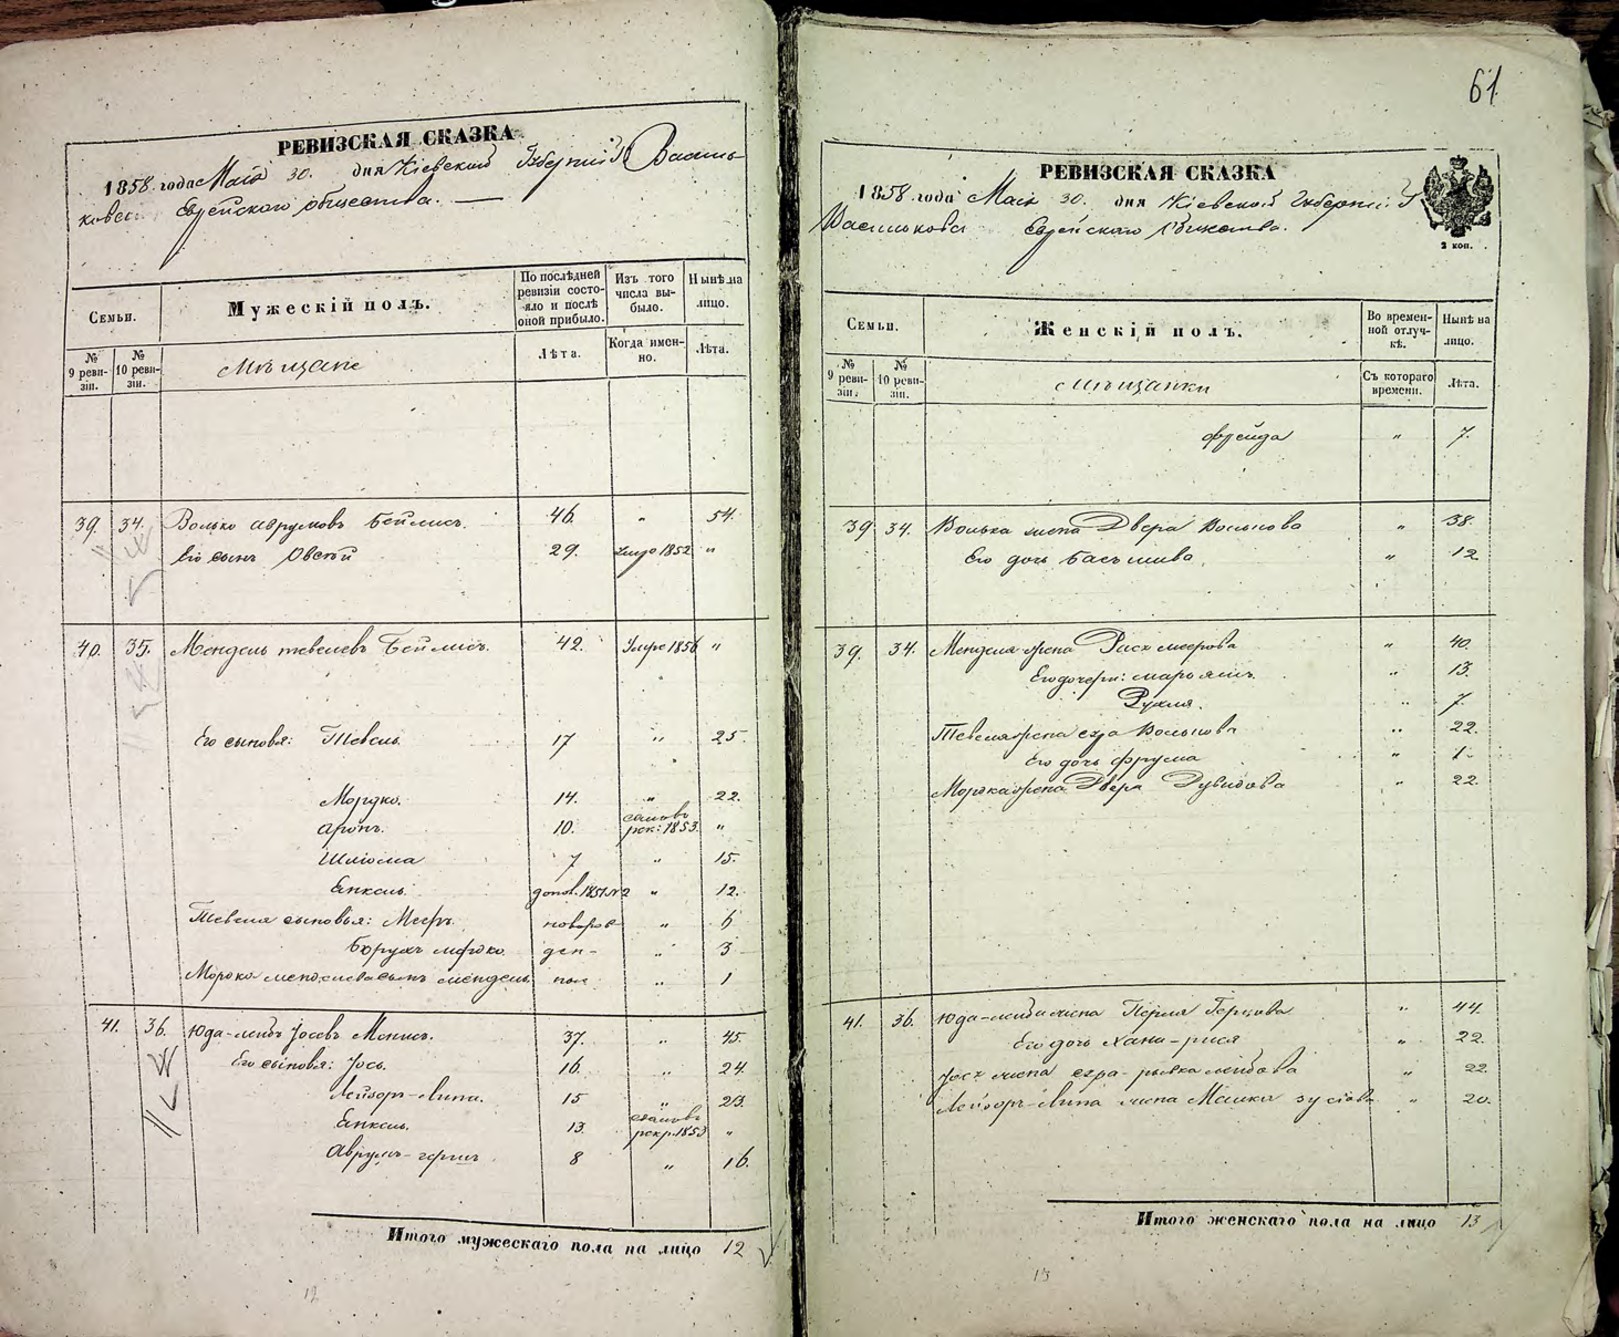 РЕВИЗСКАЯ СКАЗКА
1858 года Маія 30. дня Кіевской Губерніи Василь-
Еврейского общества.
Семьи.
Мужескій полъ.
По послѣдней ревизіи состояло и послѣ оной прибыло.
Изъ того числа выбыло.
Нынѣ на лицо.
№ 9 ревизіи.
№ 10 ревизіи.
Мѣщане
Лѣта.
Когда именно.
Лѣта.
39. 34. Волько Аврумовъ Бейлисъ. 46. " 54.
Его сынъ Овсѣй 29. Умре 1852 "
40. 35. Мендель Тевелевъ Бейлисъ. 42. Умре 1856 "
Его сыновья: Тевель 17 " 25.
Мордко. 14. " 22.
Аронъ. 10. рек: 1853. "
Шліома 7 " 15.
Янкель. допол. 1851 №2 " 12.
Тевеля сыновья: Мееръ новорож "
Борухъ ден- " 3
Мордко сынъ Мендель ные " 1
41. 36. Юда-Лейбъ Іосевъ 37. " 45.
Его сыновья: Іось. 16. " 24.
Лейзоръ-Липа. 15 " 23.
Янкель. 13. рекр. 1853 "
Аврумъ-Гершъ 8 " 16.
Итого мужескаго пола на лицо 12
12
61
РЕВИЗСКАЯ СКАЗКА
1858 года Маія 30. дня Кіевской Губерніи
Еврейского Общества.
2 коп.
Семьи.
Женскій полъ.
Во временной отлучкѣ.
Нынѣ на лицо.
№ 9 ревизіи.
№ 10 ревизіи.
Мѣщанки
Съ котораго времени.
Лѣта.
Фрейда " 7.
39 34. Волька жена Двера Волькова " 38.
Его дочь Басъшива " 12
39. 34. Менделя жена Рися Меерова " 40.
Его дочери: Марьясъ. " 13.
Рухля. " 7.
Тевеля жена Волькова " 22.
Его дочь Фрума " 1.
Мордка жена Двера Дувидова " 22.
41. 36. Юда-Лейби жена Перля Герцова " 44.
Его дочь Хана-Рися " 22.
Іося жена Сура-Рывка Лейбова " 22.
Лейзоръ-Липа жена Зусіова " 20.
Итого женскаго пола на лицо 13
13